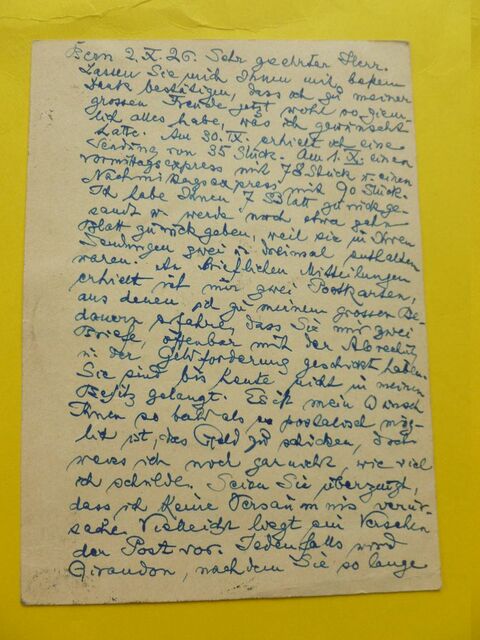 Bern 2.X.26. Sehr geehrter Herr.
Lassen Sie mich Ihnen mit bestem
Dank bestätigen, dass ich zu meiner
grossen Freude jetzt wohl so ziem-
lich alles habe, was ich gewünscht
hatte. Am 30.IX. erhielt ich eine
Sendung von 35 Stück. Am 1.X. einen
Vormittagsexpress mit 78 Stück u. einen
Nachmittagsexpress mit 90 Stück.
Ich habe Ihnen 7 Blatt zurückge-
sandt u. werde noch etwa zehn
Blatt zurückgeben, weil sie in Ihren
Sendungen zwei u. dreimal enthalten
waren. An brieflichen Mitteilungen
erhielt ich nur zwei Postkarten,
aus denen ich zu meinem grossen Be-
dauern erfahre, dass Sie mir zwei
Briefe, offenbar mit der Abrechng
u. der Geldforderung geschickt haben.
Sie sind bis heute nicht in meinen
Besitz gelangt. Es ist mein Wunsch
Ihnen so bald als es postalisch mög-
lich ist, das Geld zu schicken, doch
weiss ich noch gar nicht, wie viel
ich schulde. Seien Sie überzeugt,
dass ich keine Versäumnis verur-
sache. Vielleicht liegt ein Versehen
der Post vor. Jedenfalls wird
Giraudon, nachdem Sie so lange